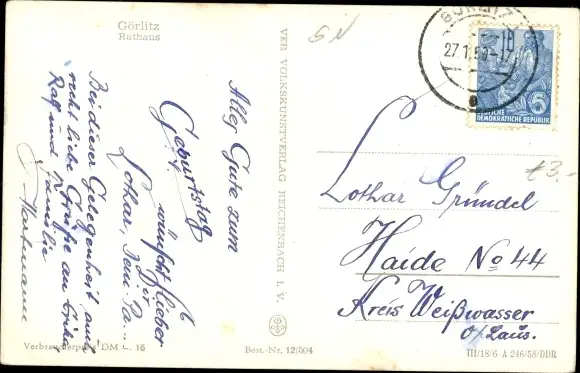 Görlitz
Rathaus
Alles Gute zum
Geburtstag
wünscht lieber
Lothar, Dir
Dein Pa...
Bei dieser Gelegenheit auch
recht liebe Grüße an Erika
Ralf und Familie
Hartmann
VEB VOLKSKUNSTVERLAG REICHENBACH I. V.
Verbraucherpreis DM -. 15
Best.-Nr. 12/504
GÖRLITZ
27.1.59-17
DEUTSCHE
DEMOKRATISCHE REPUBLIK
5
Lothar Gründel
Haide No 44
Kreis Weißwasser
o/Laus.
III/18/6 A 246/58/DDR